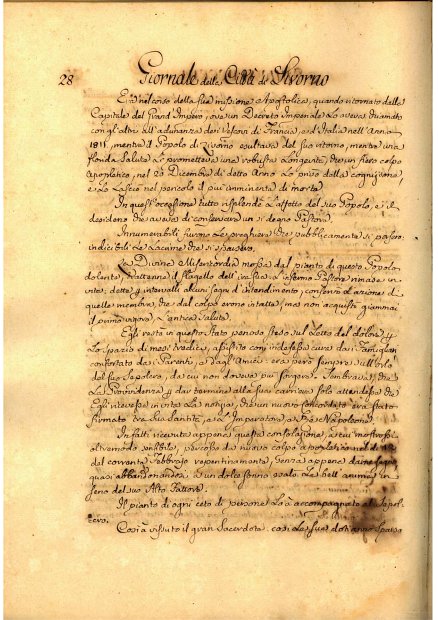 28 Giornale della Città di Livorno
Era nel corso della sua missione Apostolica, quando ritornato dalla
Capitale del Grand Impero, ove un Decreto Imperiale Lo aveva chiamato
con gli altri all'adunanza dei Vescovi di Francia, e d'Italia nell'Anno
1811, mentre il Popolo di Livorno esultava del suo ritorno, mentre una
florida Salute Le prometteva una robusta Longevità, che un fiero colpo
apopletico, nel 20 Dicembre di detto Anno Lo privò della cognizione,
e Lo Lasciò nel pericolo il più imminente di morte.
In quest'occasione tutto risplendè L'affetto del suo Popolo, e il
desiderio che aveva di conservare un sì degno Pastore.
Innumerabili furono Le preghiere che pubblicamente si fecero,
indicibili Le Lacrime che si sparsero.
La Divina Misericordia mossa dal pianto di questo Popolo
dolente, trattenne il flagello dell'ira sua, e l'infermo Pastore rimase in
vita, dette a intervalli alcuni segni d'intendimento, conservò l'azione di
quelle membra, che dal colpo erono intatte, ma non acquistò giammai
il primo vigore, e l'antica Salute.
Egli restò in questo Stato penoso steso sul Letto del dolore p
Lo spazio di mesi tredici, assistito con indefessa cura dai Famigliari
confortato dai Parenti, e dagl'Amici, era però sempre sull'orlo
del suo Sepolcro, da cui non doveva più sorgere. Sembrava, che
La Provvidenza p dar termine alla sua carriera solo attendesse che
Egli ricevesse in vita La notizia, che un nuovo Concordato era stato
firmato tra Sua Santità, e L'Imperatore, e Re Napoleone.
Infatti ricevuta appena questa consolazione, a cui mostrossi
oltremodo sensibile, percosso da nuovo colpo apopletico nel dì
del corrente Febbraio repentinamente, senza appena
quasi abbandonandosi a un dolce sonno esalò La bell'anima in
seno del suo Alto Fattore.
Il pianto di ogni ceto di persone Lo à accompagnato al Sepol-
cro.
Così à vissuto il gran Sacerdote. così La sua